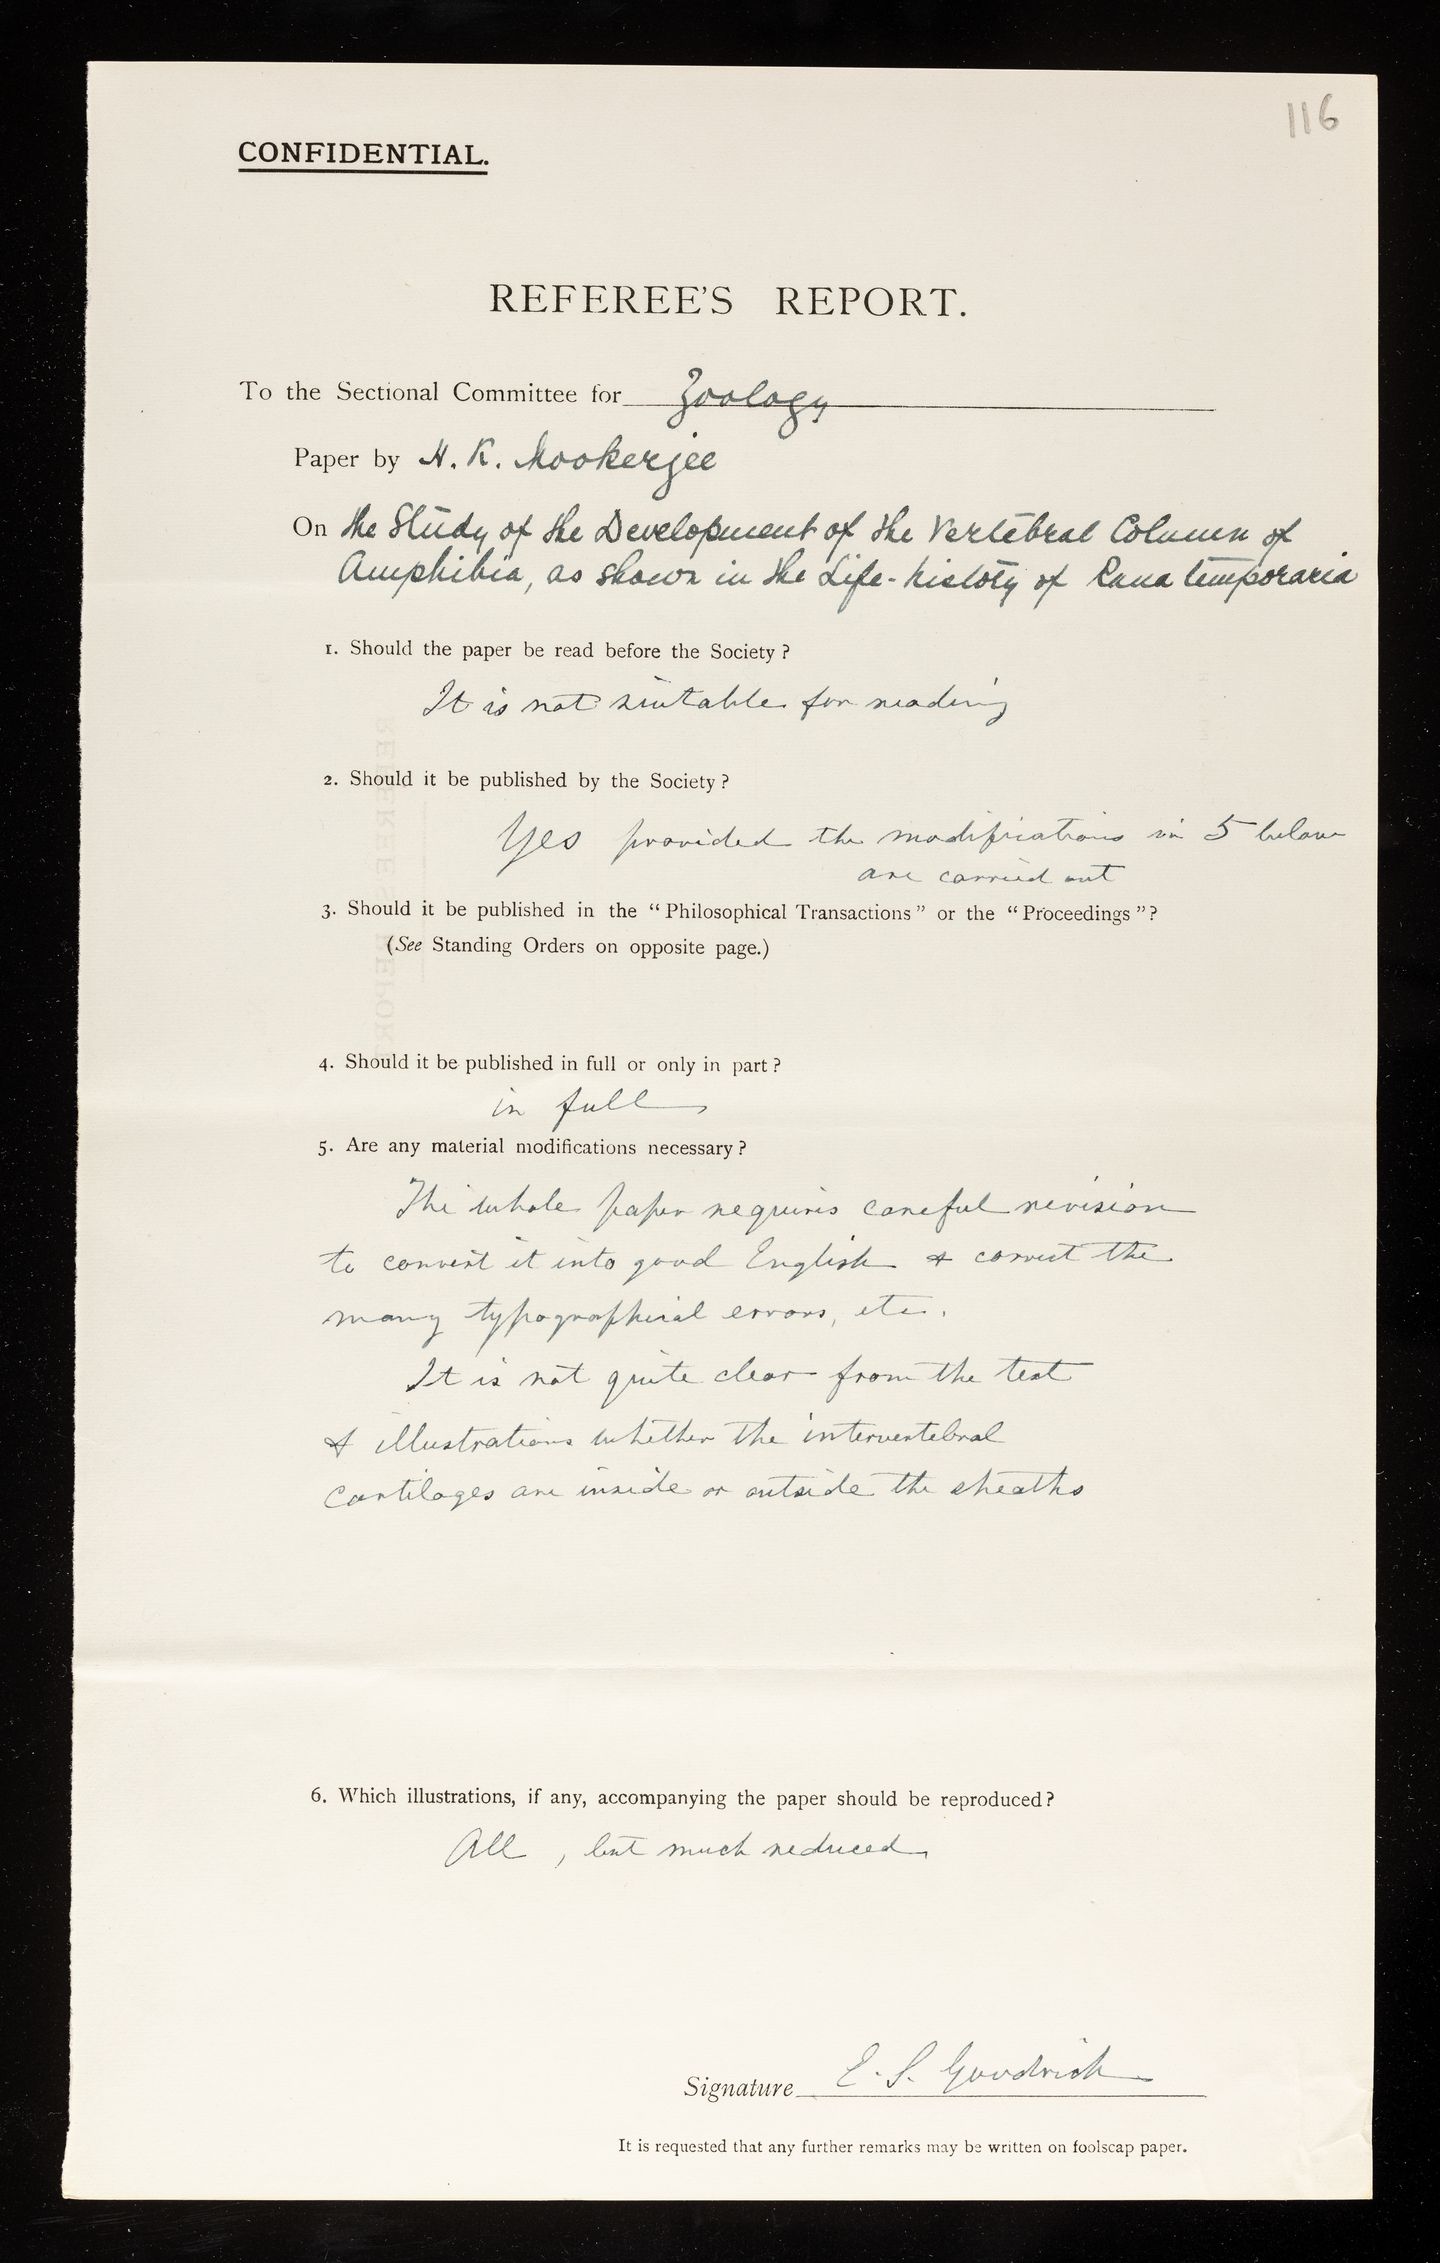 116
CONFIDENTIAL.
REFEREE'S REPORT.
To the Sectional Committee for Zoology
Paper by H. K. Mookerjee
On the Study of the Development of the Vertebral Column of
Amphibia, as shown in the Life-history of Rana temporaria
1. Should the paper be read before the Society?
It is not suitable for reading
2. Should it be published by the Society?
Yes provided the modifications in 5 below
are carried out
3. Should it be published in the "Philosophical Transactions" or the "Proceedings"?
(See Standing Orders on opposite page.)
4. Should it be published in full or only in part?
in full
5. Are any material modifications necessary?
The whole paper requires careful revision
to convert it into good English & correct the
many typographical errors, etc.
It is not quite clear from the text
& illustrations whether the intervertebral
cartilages are inside or outside the sheaths
6. Which illustrations, if any, accompanying the paper should be reproduced?
All, but much reduced
Signature E. S. Goodrich
It is requested that any further remarks may be written on foolscap paper.